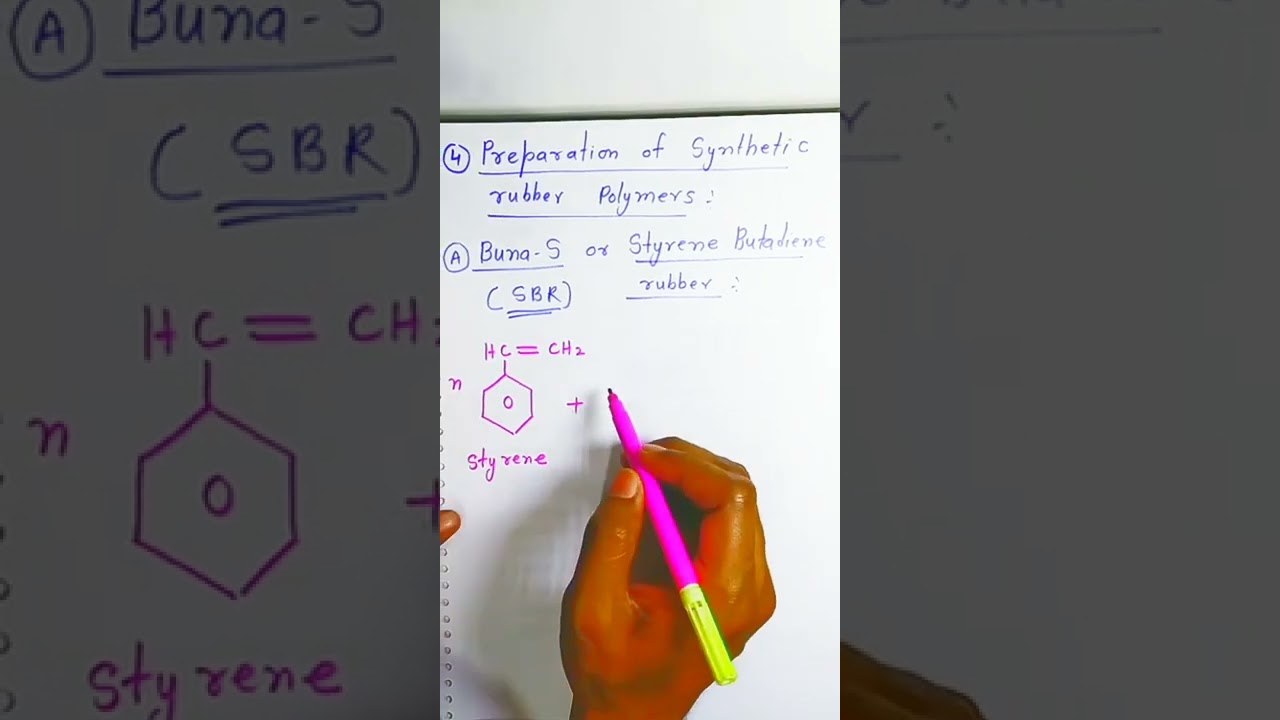 ④ Preparation of Synthetic
rubber Polymers :
Ⓐ Buna-S or Styrene Butadiene
(SBR) rubber :
HC = CH₂
n +
Styrene